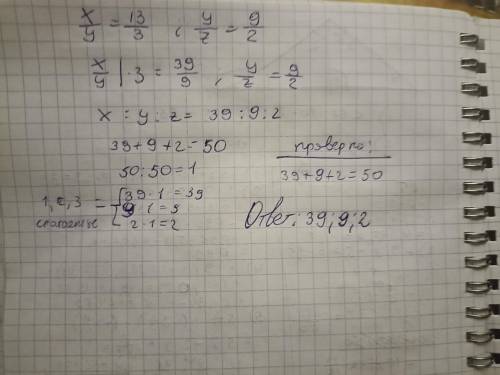 x/y = 13/3 ; y/z = 9/2
x/y | ·3 = 39/9 ; y/z = 9/2
x : y : z = 39 : 9 : 2
39+9+2=50
50:50=1
проверка:
39+9+2=50
39·1=39
9·1=9
2·1=2
Ответ: 39; 9; 2